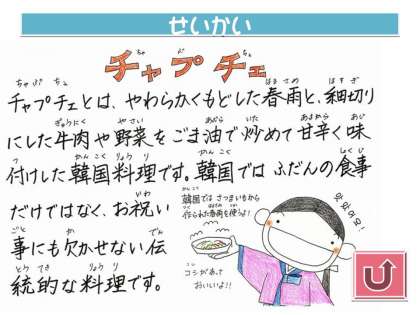 せいかい
チャプチェ
チャプチェとは、やわらかくもどした春雨と、細切り
にした牛肉や野菜をごま油で炒めて甘辛く味
付けした韓国料理です。韓国ではふだんの食事
だけではなく、お祝い
事にも欠かせない伝
統的な料理です。
韓国ではさつまいもから
作られた春雨を使うよ!
コシがあって
おいしいよ!!
맛있어요!